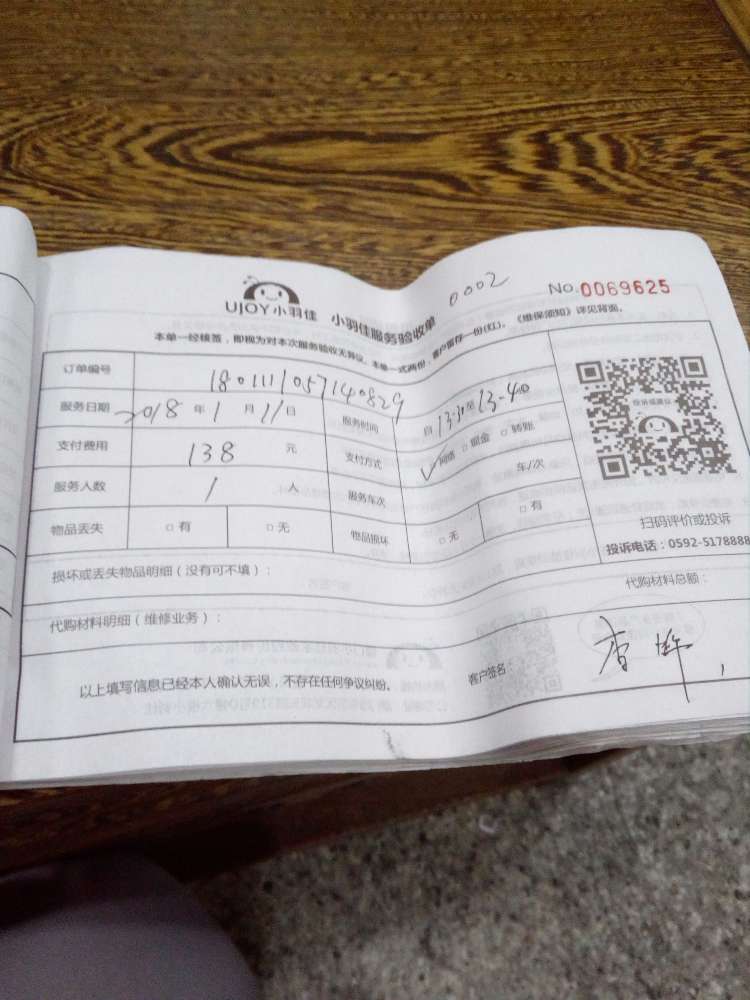 UJOY小羽佳 小羽佳服务验收单 0002 No.0069625
本单一经核签，即视为对本次服务验收无异议。本单一式两份，客户留存一份(红)。《维保须知》详见背面。
订单编号 1801111057140829
服务日期 2018年1月11日 服务时间 自13-30至13-40
支付费用 138元 支付方式 √网络 □现金 □转账
服务人数 1人 服务车次 车/次
物品丢失 □有 □无 物品损坏 □无 □有
投诉或建议
扫码评价或投诉
投诉电话：0592-5178888
损坏或丢失物品明细（没有可不填）：
代购材料明细（维修业务）： 代购材料总额：
以上填写信息已经本人确认无误，不存在任何争议纠纷。 客户签名：